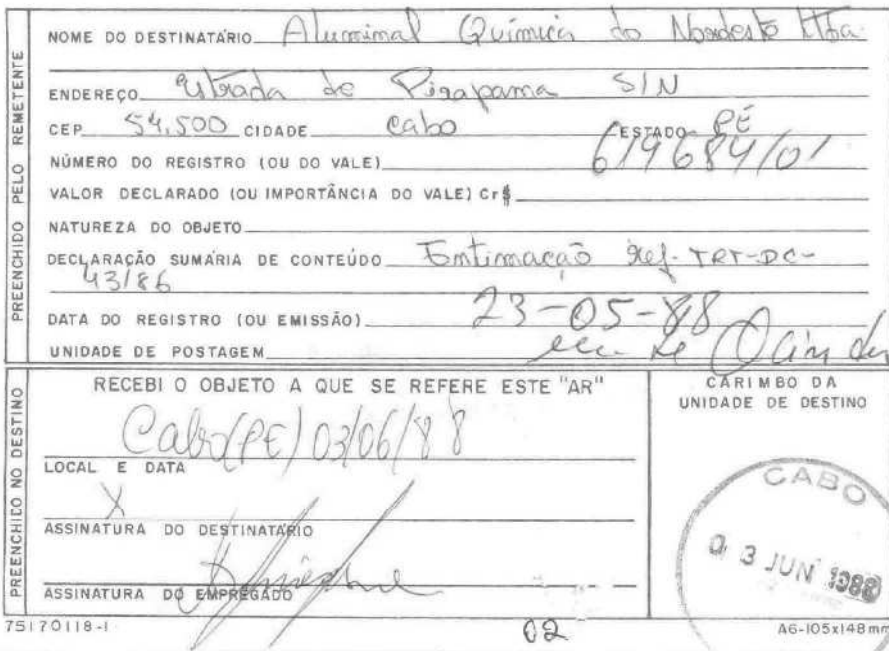 PREENCHIDO PELO REMETENTE
NOME DO DESTINATÁRIO Aluminal Química do Nordeste Ltda.
ENDEREÇO Estrada de Pirapama S/N
CEP 54.500 CIDADE Cabo ESTADO PÉ
NÚMERO DO REGISTRO (OU DO VALE) 619684/01
VALOR DECLARADO (OU IMPORTÂNCIA DO VALE) Cr$
NATUREZA DO OBJETO
DECLARAÇÃO SUMÁRIA DE CONTEÚDO Intimação Ref. TRT-DC-
43/86
DATA DO REGISTRO (OU EMISSÃO) 23-05-88
UNIDADE DE POSTAGEM
PREENCHIDO NO DESTINO
RECEBI O OBJETO A QUE SE REFERE ESTE "AR"
Cabo (PE) 03/06/88
LOCAL E DATA
X
ASSINATURA DO DESTINATÁRIO
ASSINATURA DO EMPREGADO
CARIMBO DA
UNIDADE DE DESTINO
CABO
03 JUN 1988
75170118-1
02
A6-105x148mm